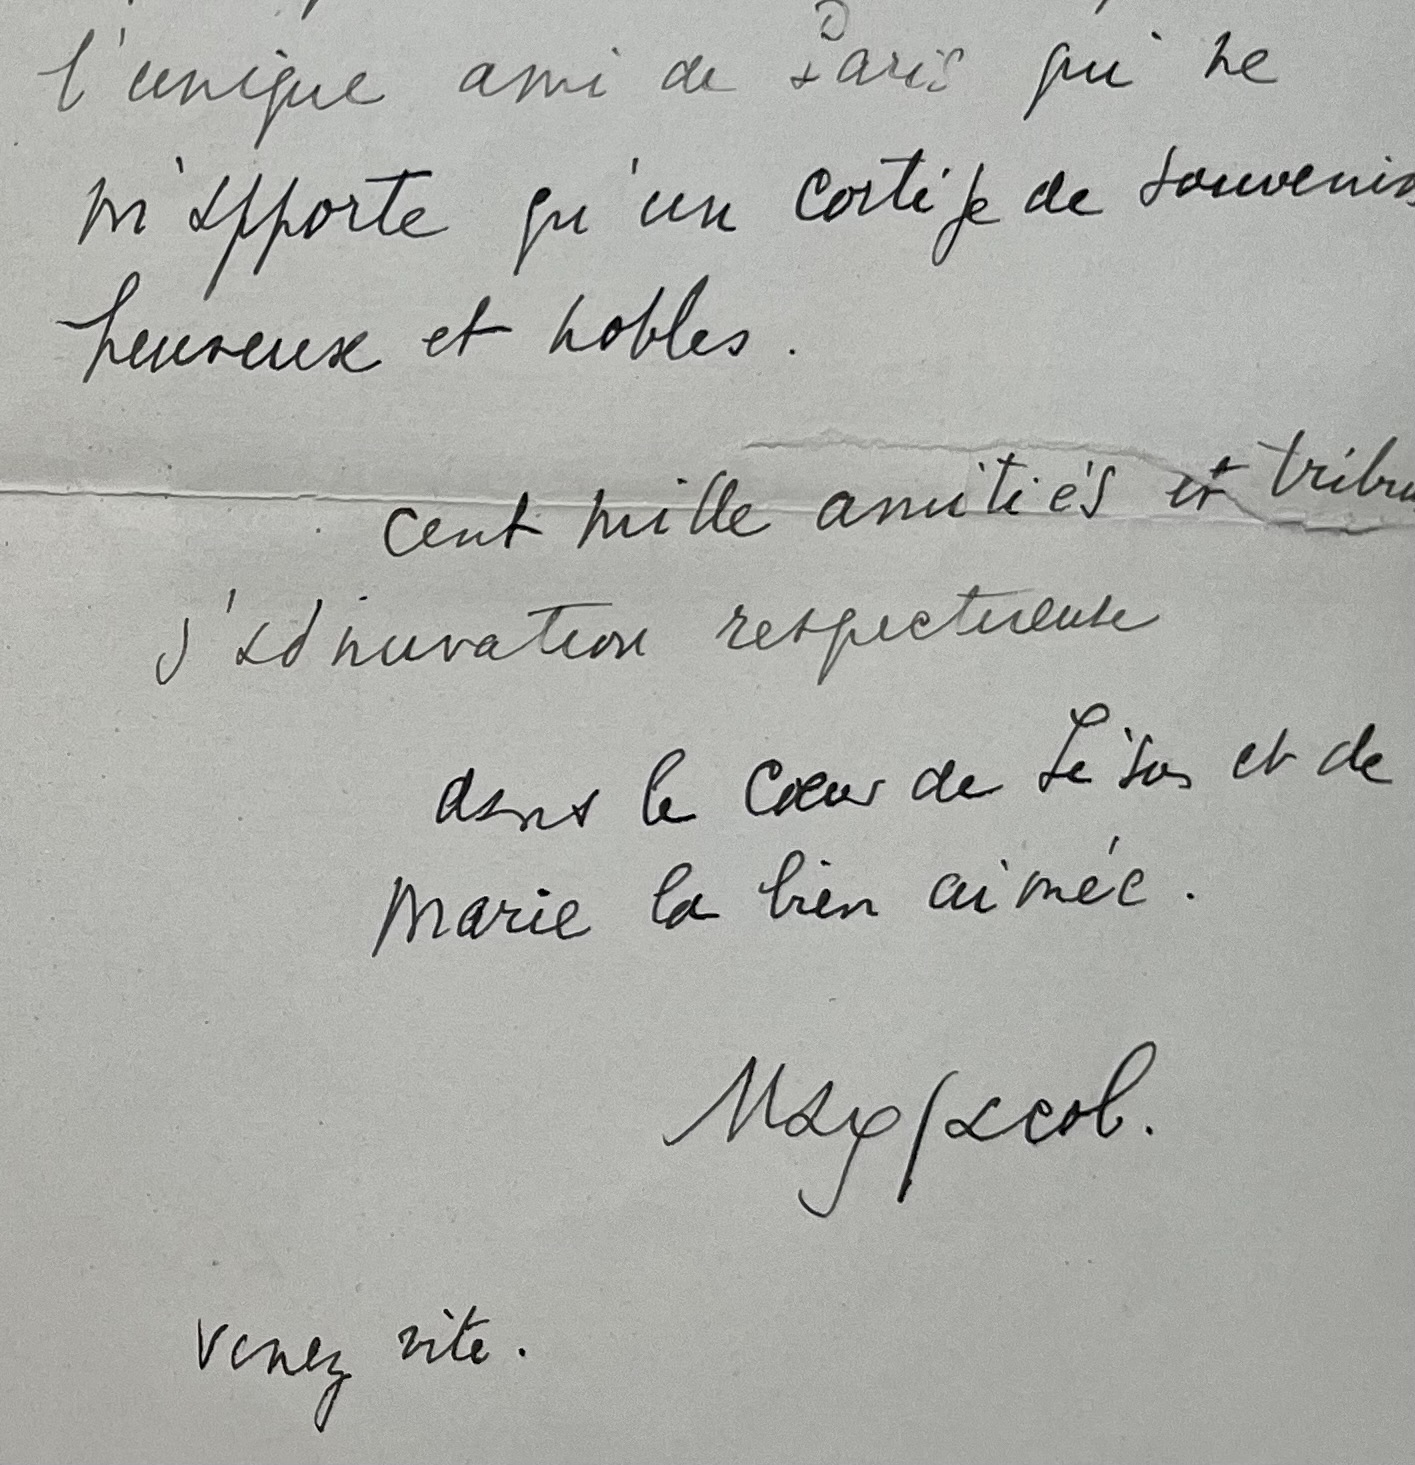 l'unique ami de Paris qui ne
m'apporte qu'un cortège de souvenirs
heureux et nobles.
cent mille amitiés et tribu
d'admiration respectueuse
dans le cœur de Jésus et de
Marie la bien aimée.
Max Jacob.
venez vite.